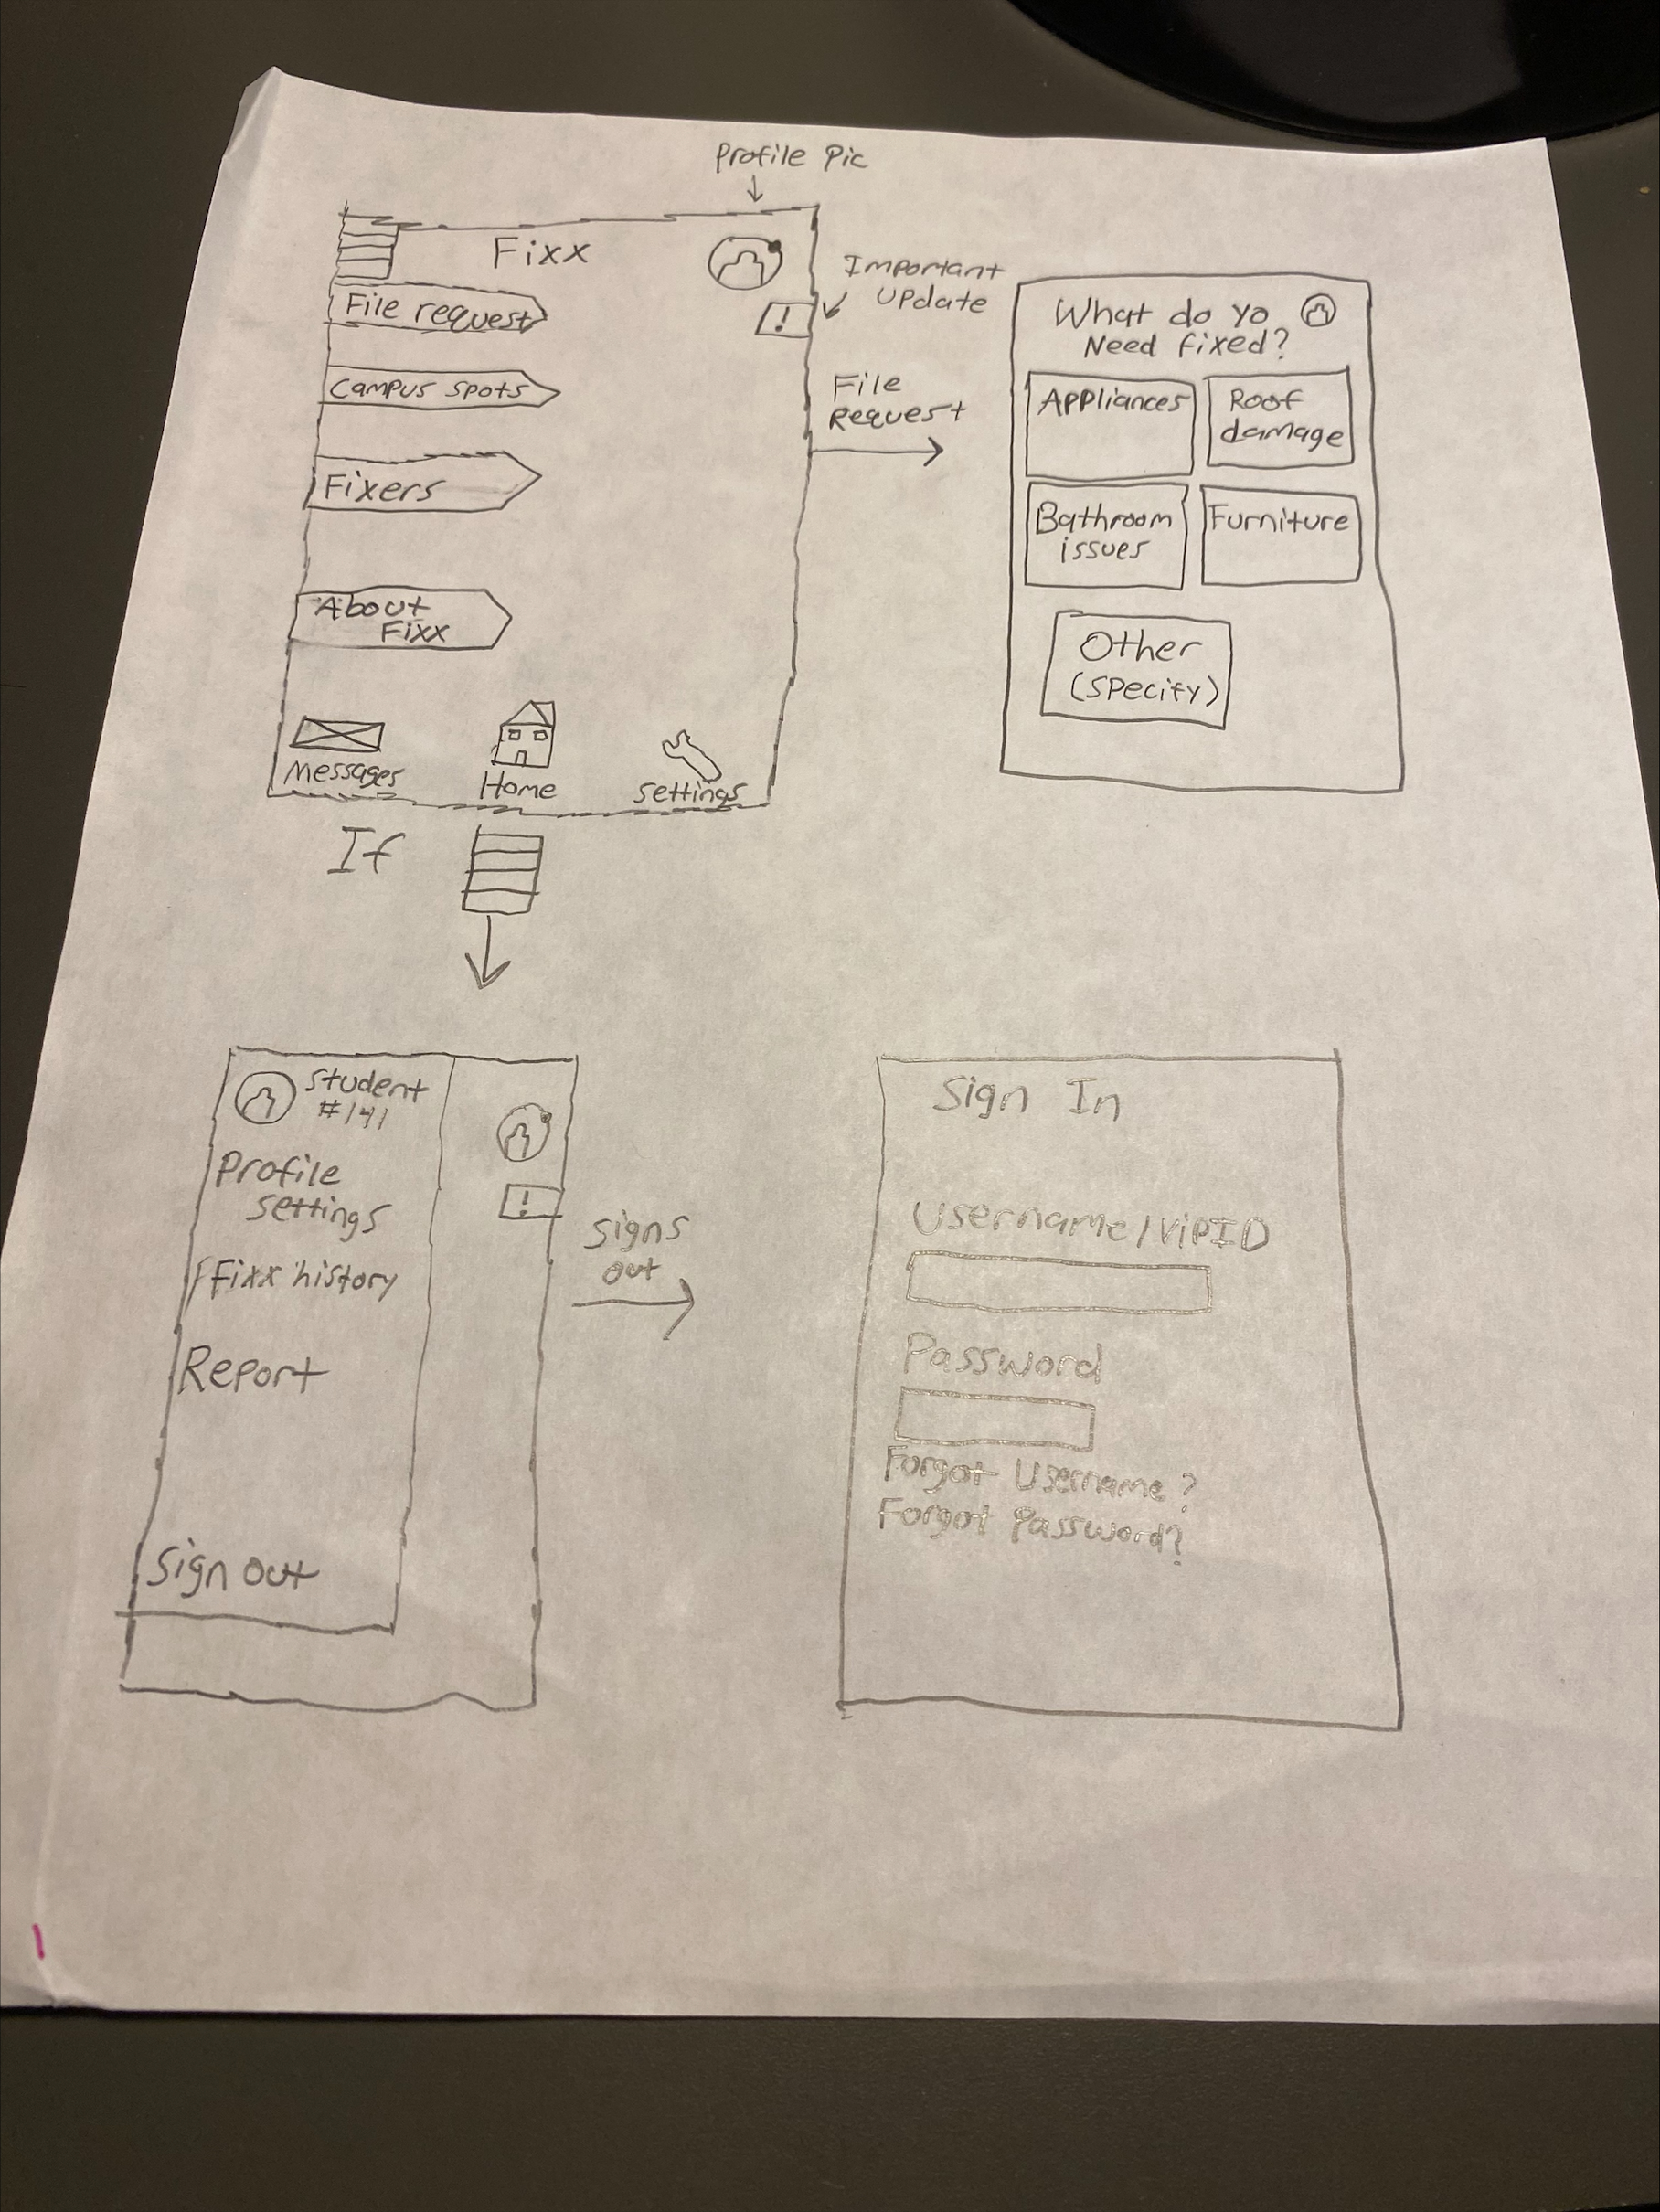 Profile Pic
Fixx
Important
Update
File request
Campus spots
Fixers
About
Fixx
Messages
Home
Settings
File
Request
What do yo
Need fixed?
Appliances
Roof
damage
Bathroom
issues
Furniture
Other
(Specify)
If
Student
#141
Profile
Settings
Fixx history
Report
Sign out
!
!
Signs
out
Sign In
Username/VipID
Password
Forgot Username?
Forgot Password?